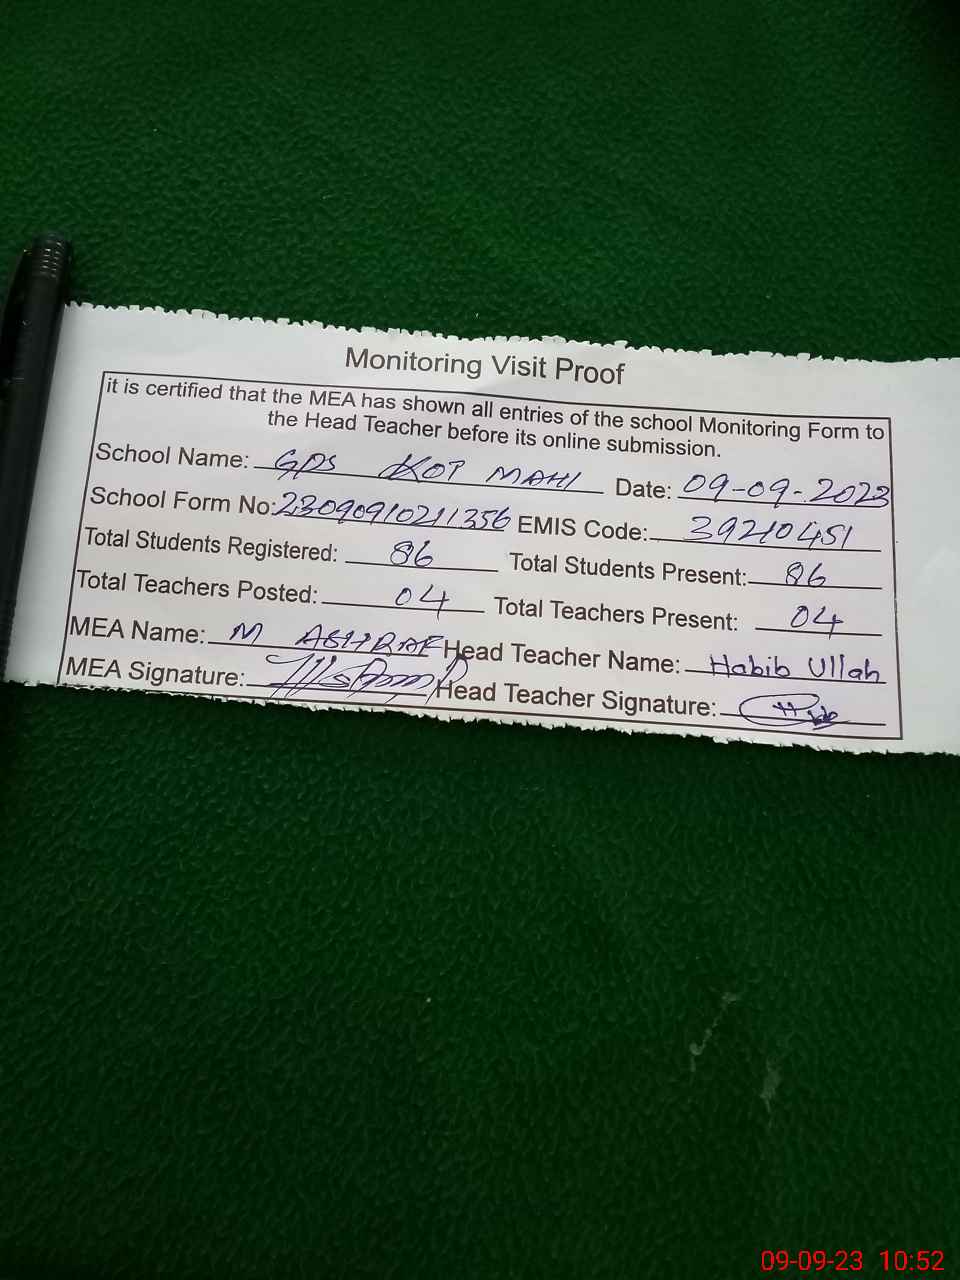 Monitoring Visit Proof
it is certified that the MEA has shown all entries of the school Monitoring Form to
the Head Teacher before its online submission.
School Name: GPS KOT MAHI Date: 09-09-2023
School Form No: 23090910211356 EMIS Code: 39210451
Total Students Registered: 86 Total Students Present: 86
Total Teachers Posted: 04 Total Teachers Present: 04
MEA Name: M ASHRAF Head Teacher Name: Habib Ullah
MEA Signature: Head Teacher Signature:
09-09-23 10:52